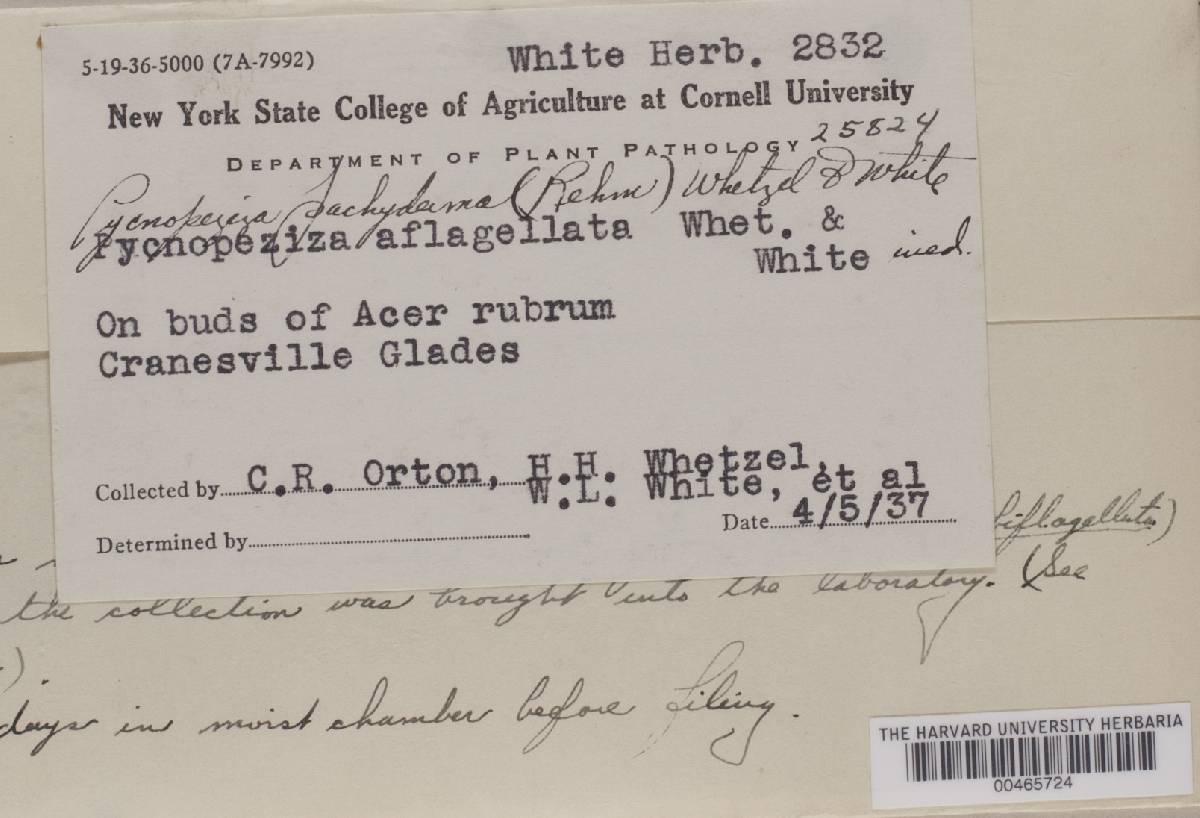 5-19-36-5000 (7A-7992)
White Herb. 2832
New York State College of Agriculture at Cornell University
DEPARTMENT OF PLANT PATHOLOGY 25824
Pycnopeziza pachyderma (Rehm) Whetzel & White
Pycnopeziza aflagellata Whet. &
White ined.
On buds of Acer rubrum
Cranesville Glades
Collected by C.R. Orton, H.H. Whetzel,
W.L. White, et al
Date 4/5/37
Determined by
biflagellata)
the collection was brought into the laboratory. (See
).
days in moist chamber before filing.
THE HARVARD UNIVERSITY HERBARIA
00465724